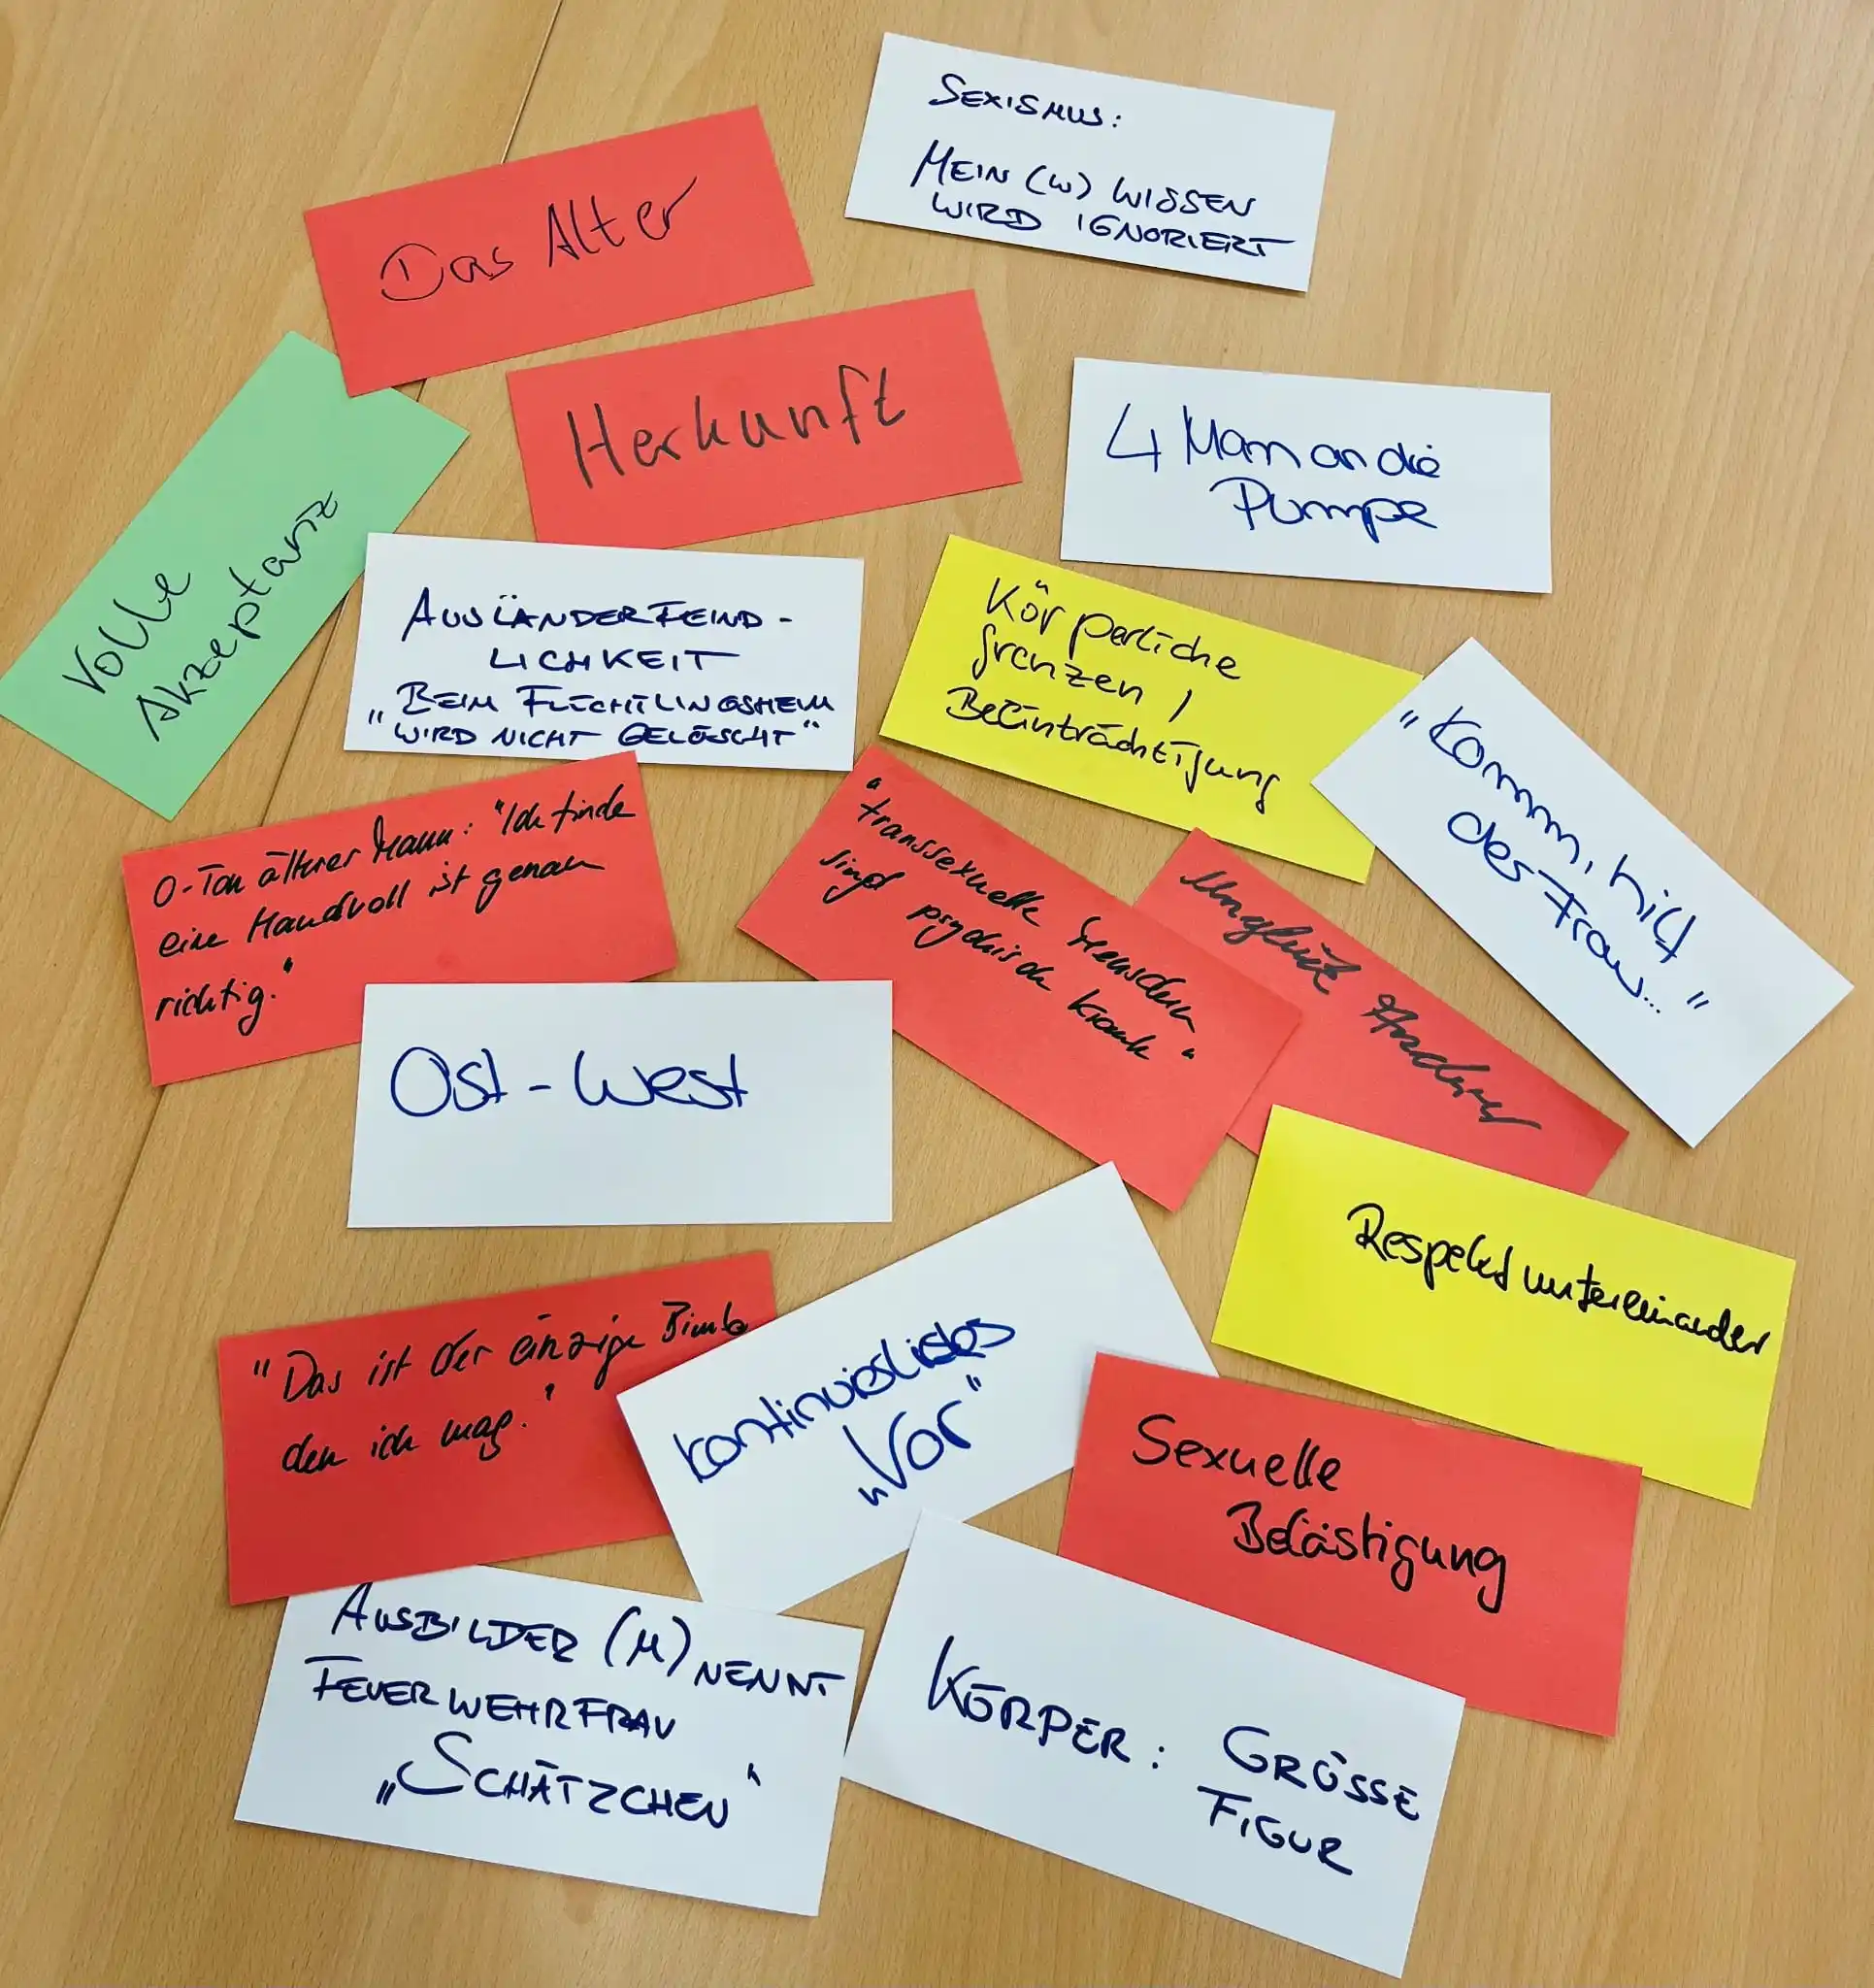 SEXISMUS:
MEIN (W) WISSEN
WIRD IGNORIERT
Das Alter
Herkunft
4 Mann an die
Pumpe
Volle
Akzeptanz
AUSLÄNDERFEIND-
LICHKEIT
"BEIM FLÜCHTLINGSHEIM
WIRD NICHT GELÖSCHT"
Körperliche
Grenzen /
Beeinträchtigung
"Komm, hilf
der Frau..."
O-Ton älterer Mann: "Ich finde
eine Handvoll ist genau
richtig."
"transsexuelle Menschen
sind psychisch krank"
Unglück Anderer
Ost-West
Respekt untereinander
"Das ist der einzige Bimbo
den ich mag."
kontinuierliches
„Vor"
Sexuelle
Belästigung
AUSBILDER (M) NENNT
FEUERWEHRFRAU
„SCHÄTZCHEN"
KÖRPER: GRÖSSE
FIGUR